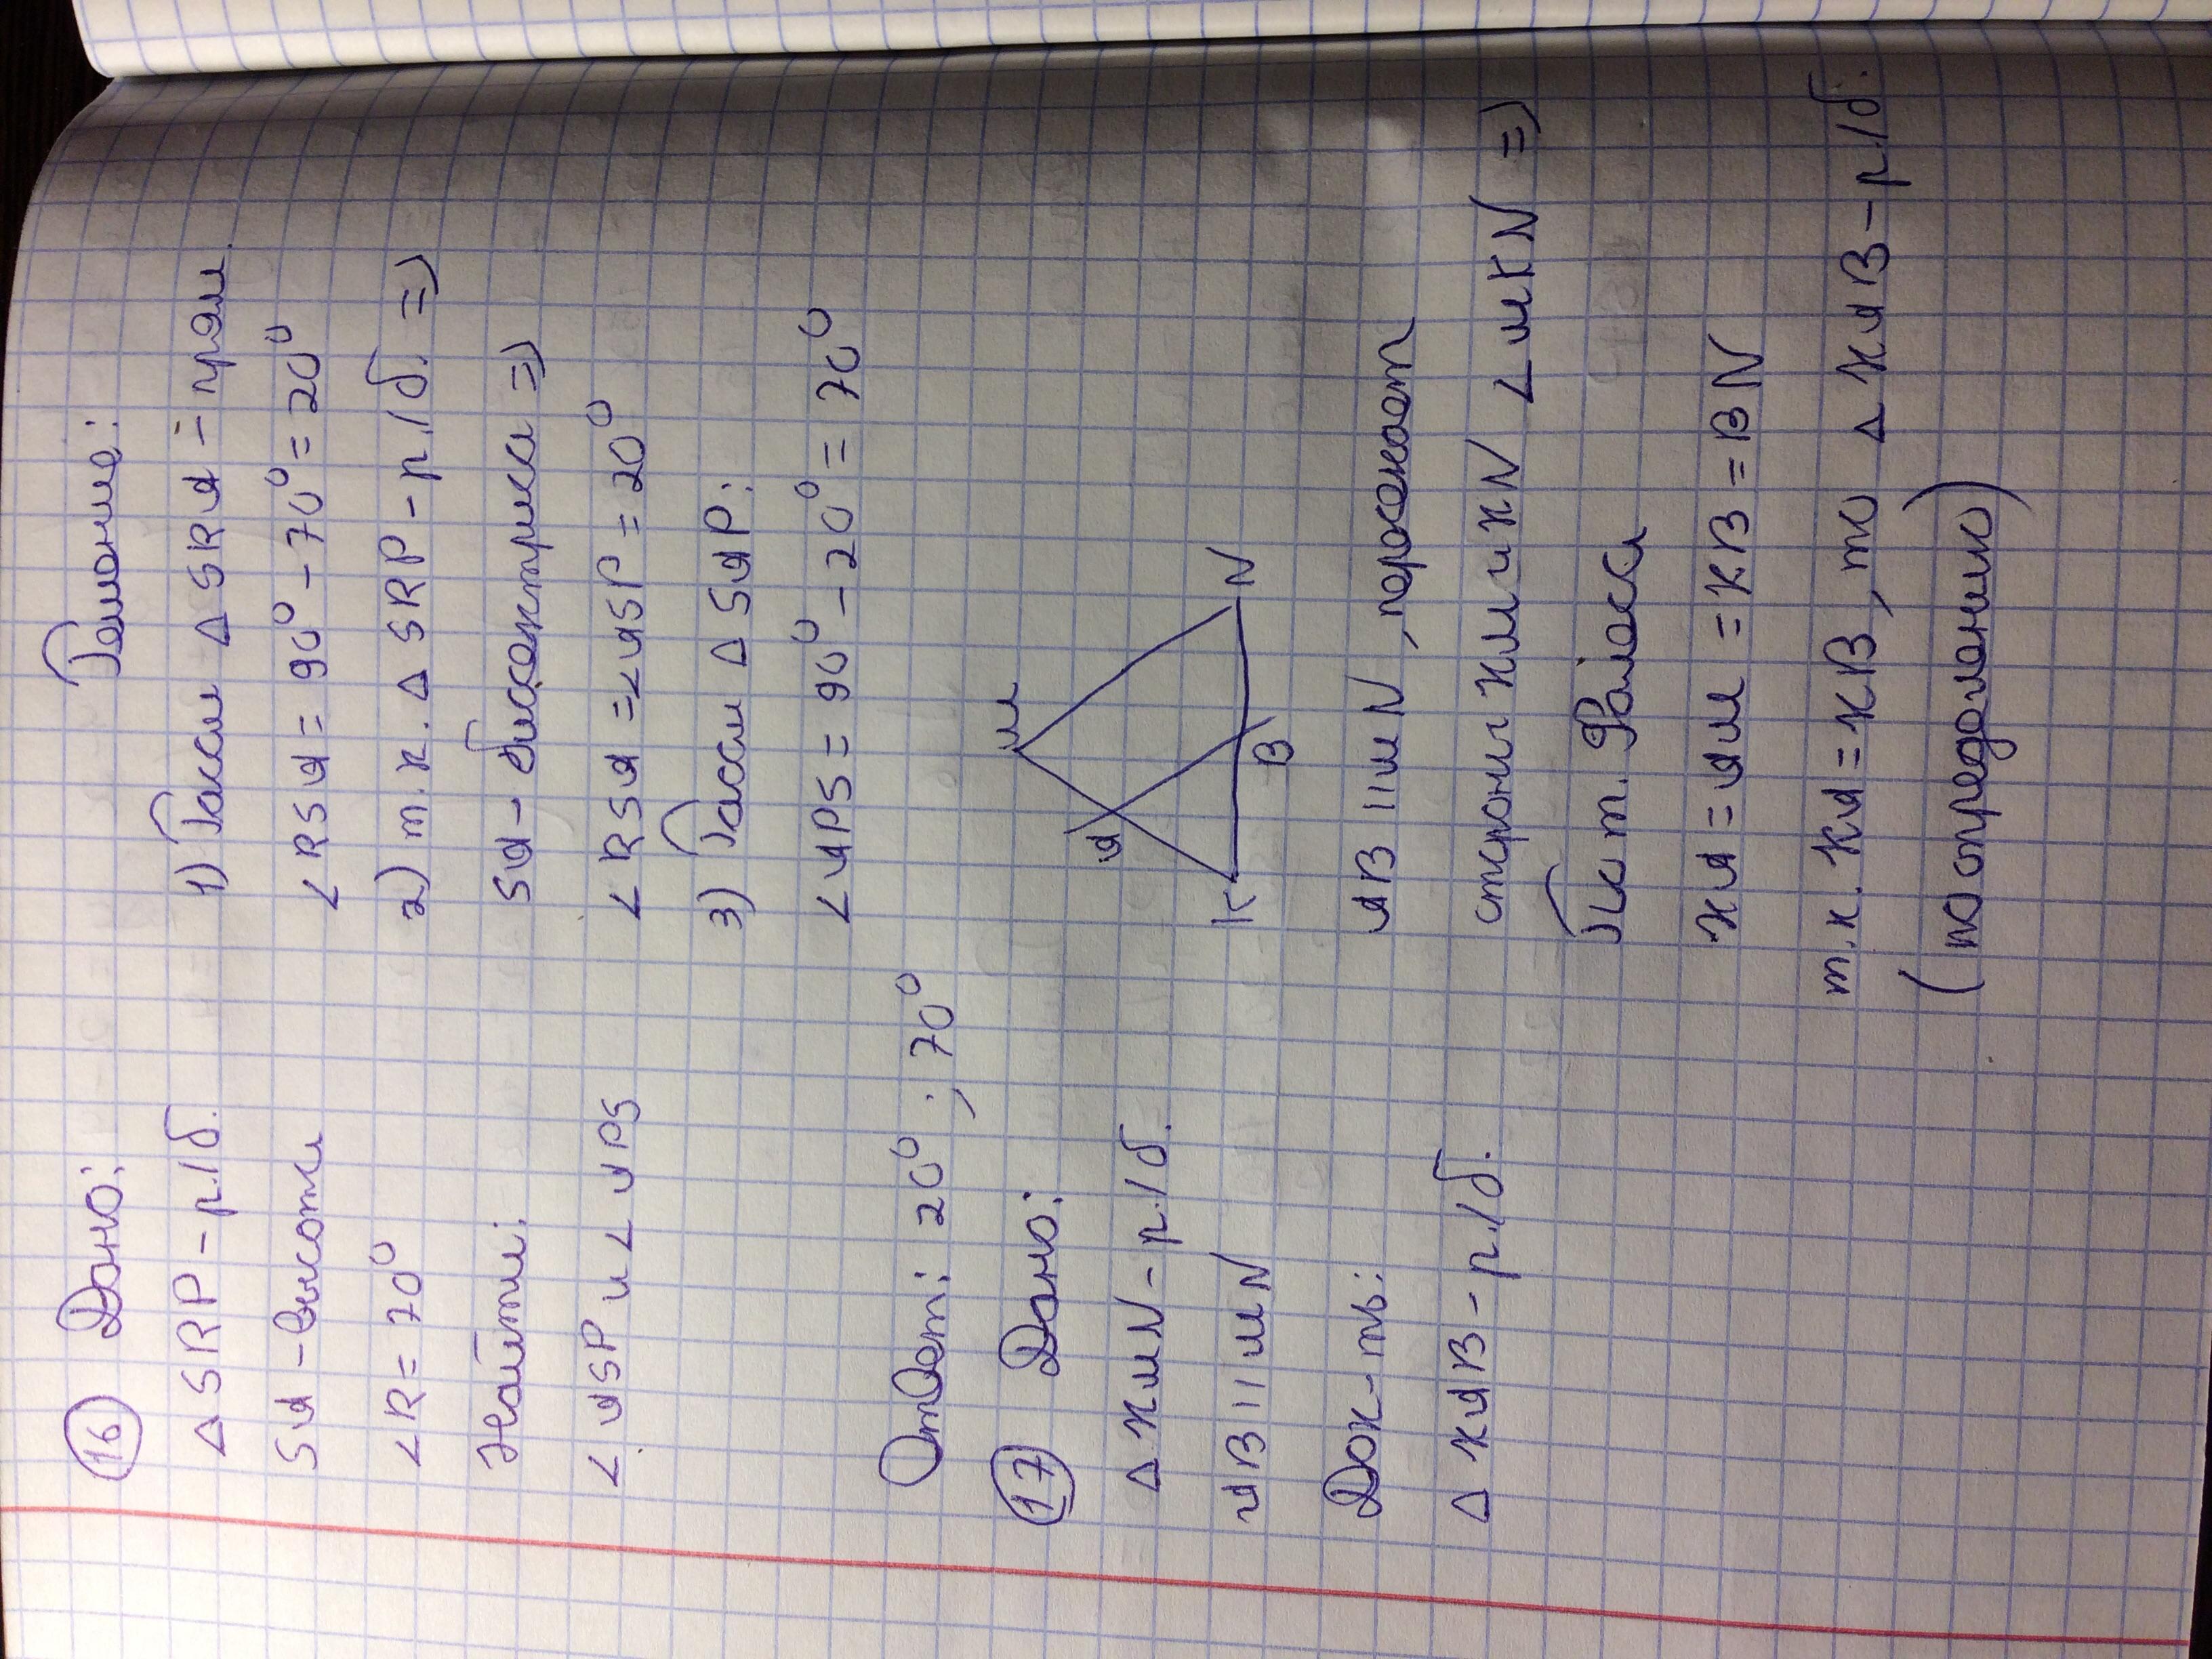 16 Дано:
△SRP - р/б.
SA - высота
∠R = 70°
Найти:
∠ASP и ∠APS
Решение:
1) Рассм △SRA - прям.
∠RSA = 90° - 70° = 20°
2) т.к. △SRP - р/б. =>
SA - биссектриса =>
∠RSA = ∠ASP = 20°
3) Рассм △SAP:
∠APS = 90° - 20° = 70°
Ответ: 20° ; 70°
17 Дано:
△KMN - р/б.
AB || MN
Док-ть:
△KAB - р/б.
M
A
K
B
N
AB || MN, пересекает
стороны KM и KN ∠MKN =>
По т. Фалеса
KA = AM = KB = BN
т.к. KA = KB, то △KAB - р/б.
(по определению)